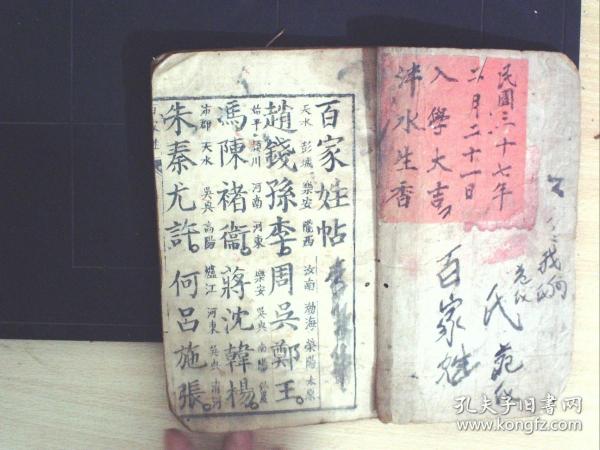 民國三十七年
二月二十一日
入學大吉
泮水生香
百家姓
氏
百家姓帖
天水 彭城 樂安 隴西 汝南 渤海 滎陽 太原
趙錢孫李周吳鄭王
始平 潁川 河南 河東 樂安 吳興 南陽 弘農
馮陳褚衛蔣沈韓楊
沛郡 天水 吳興 高陽 廬江 河東 吳興 清河
朱秦尤許何呂施張
孔夫子旧书网
www.kongfz.com